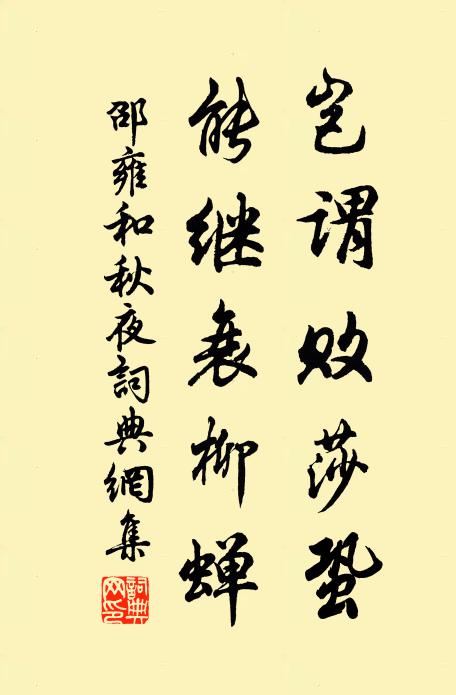 岂谓败莎蛩
能继衰柳蝉
邵雍和秋夜詞典網集
詞典网印